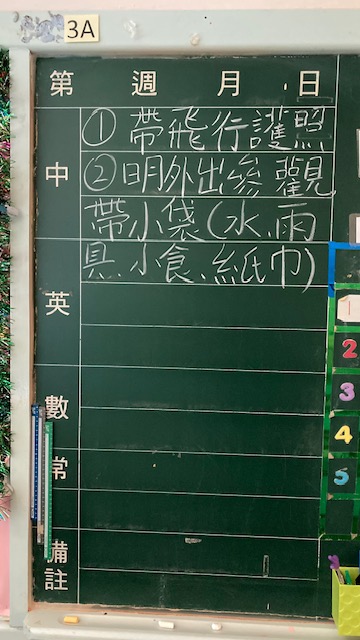 3A
第 週 月 日
中
①帶飛行護照
②明外出參觀
帶小袋(水、雨
具、小食、紙巾)
英
數
常
備註
1
2
3
4
5